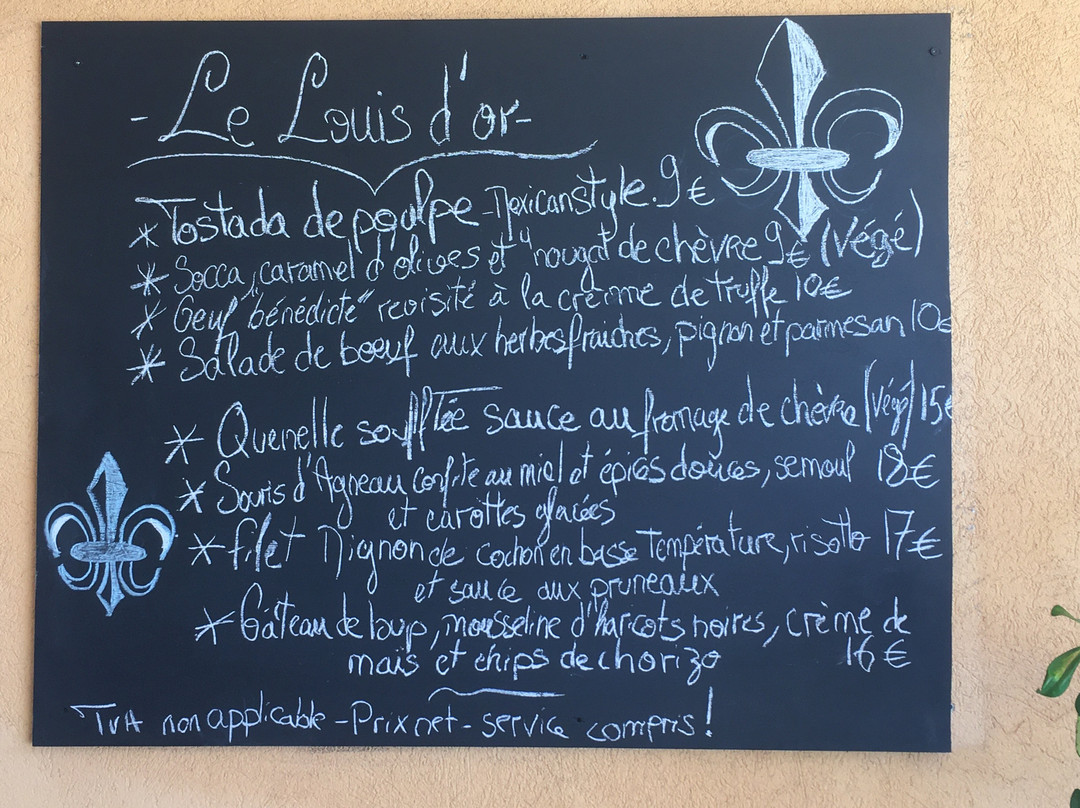 - Le Louis d'or -
* Tostada de poulpe - Mexican style. 9€
* Socca, caramel d'olives et "nougat" de chèvre 9€ (Végé)
* Oeuf "bénédicte" revisité à la crème de truffe 10€
* Salade de boeuf aux herbes fraiches, pignon et parmesan 10€
* Quenelle soufflée sauce au fromage de chèvre (Végé) 15€
* Souris d'Agneau confite au miel et épices douces, semoul 18€
et carottes glacées
* Filet Mignon de cochon en basse Température, risotto 17€
et sauce aux pruneaux
* Gâteau de loup, mousseline d'haricots noires, crème de
maïs et chips de chorizo 16€
TVA non applicable - Prix net - service compris !